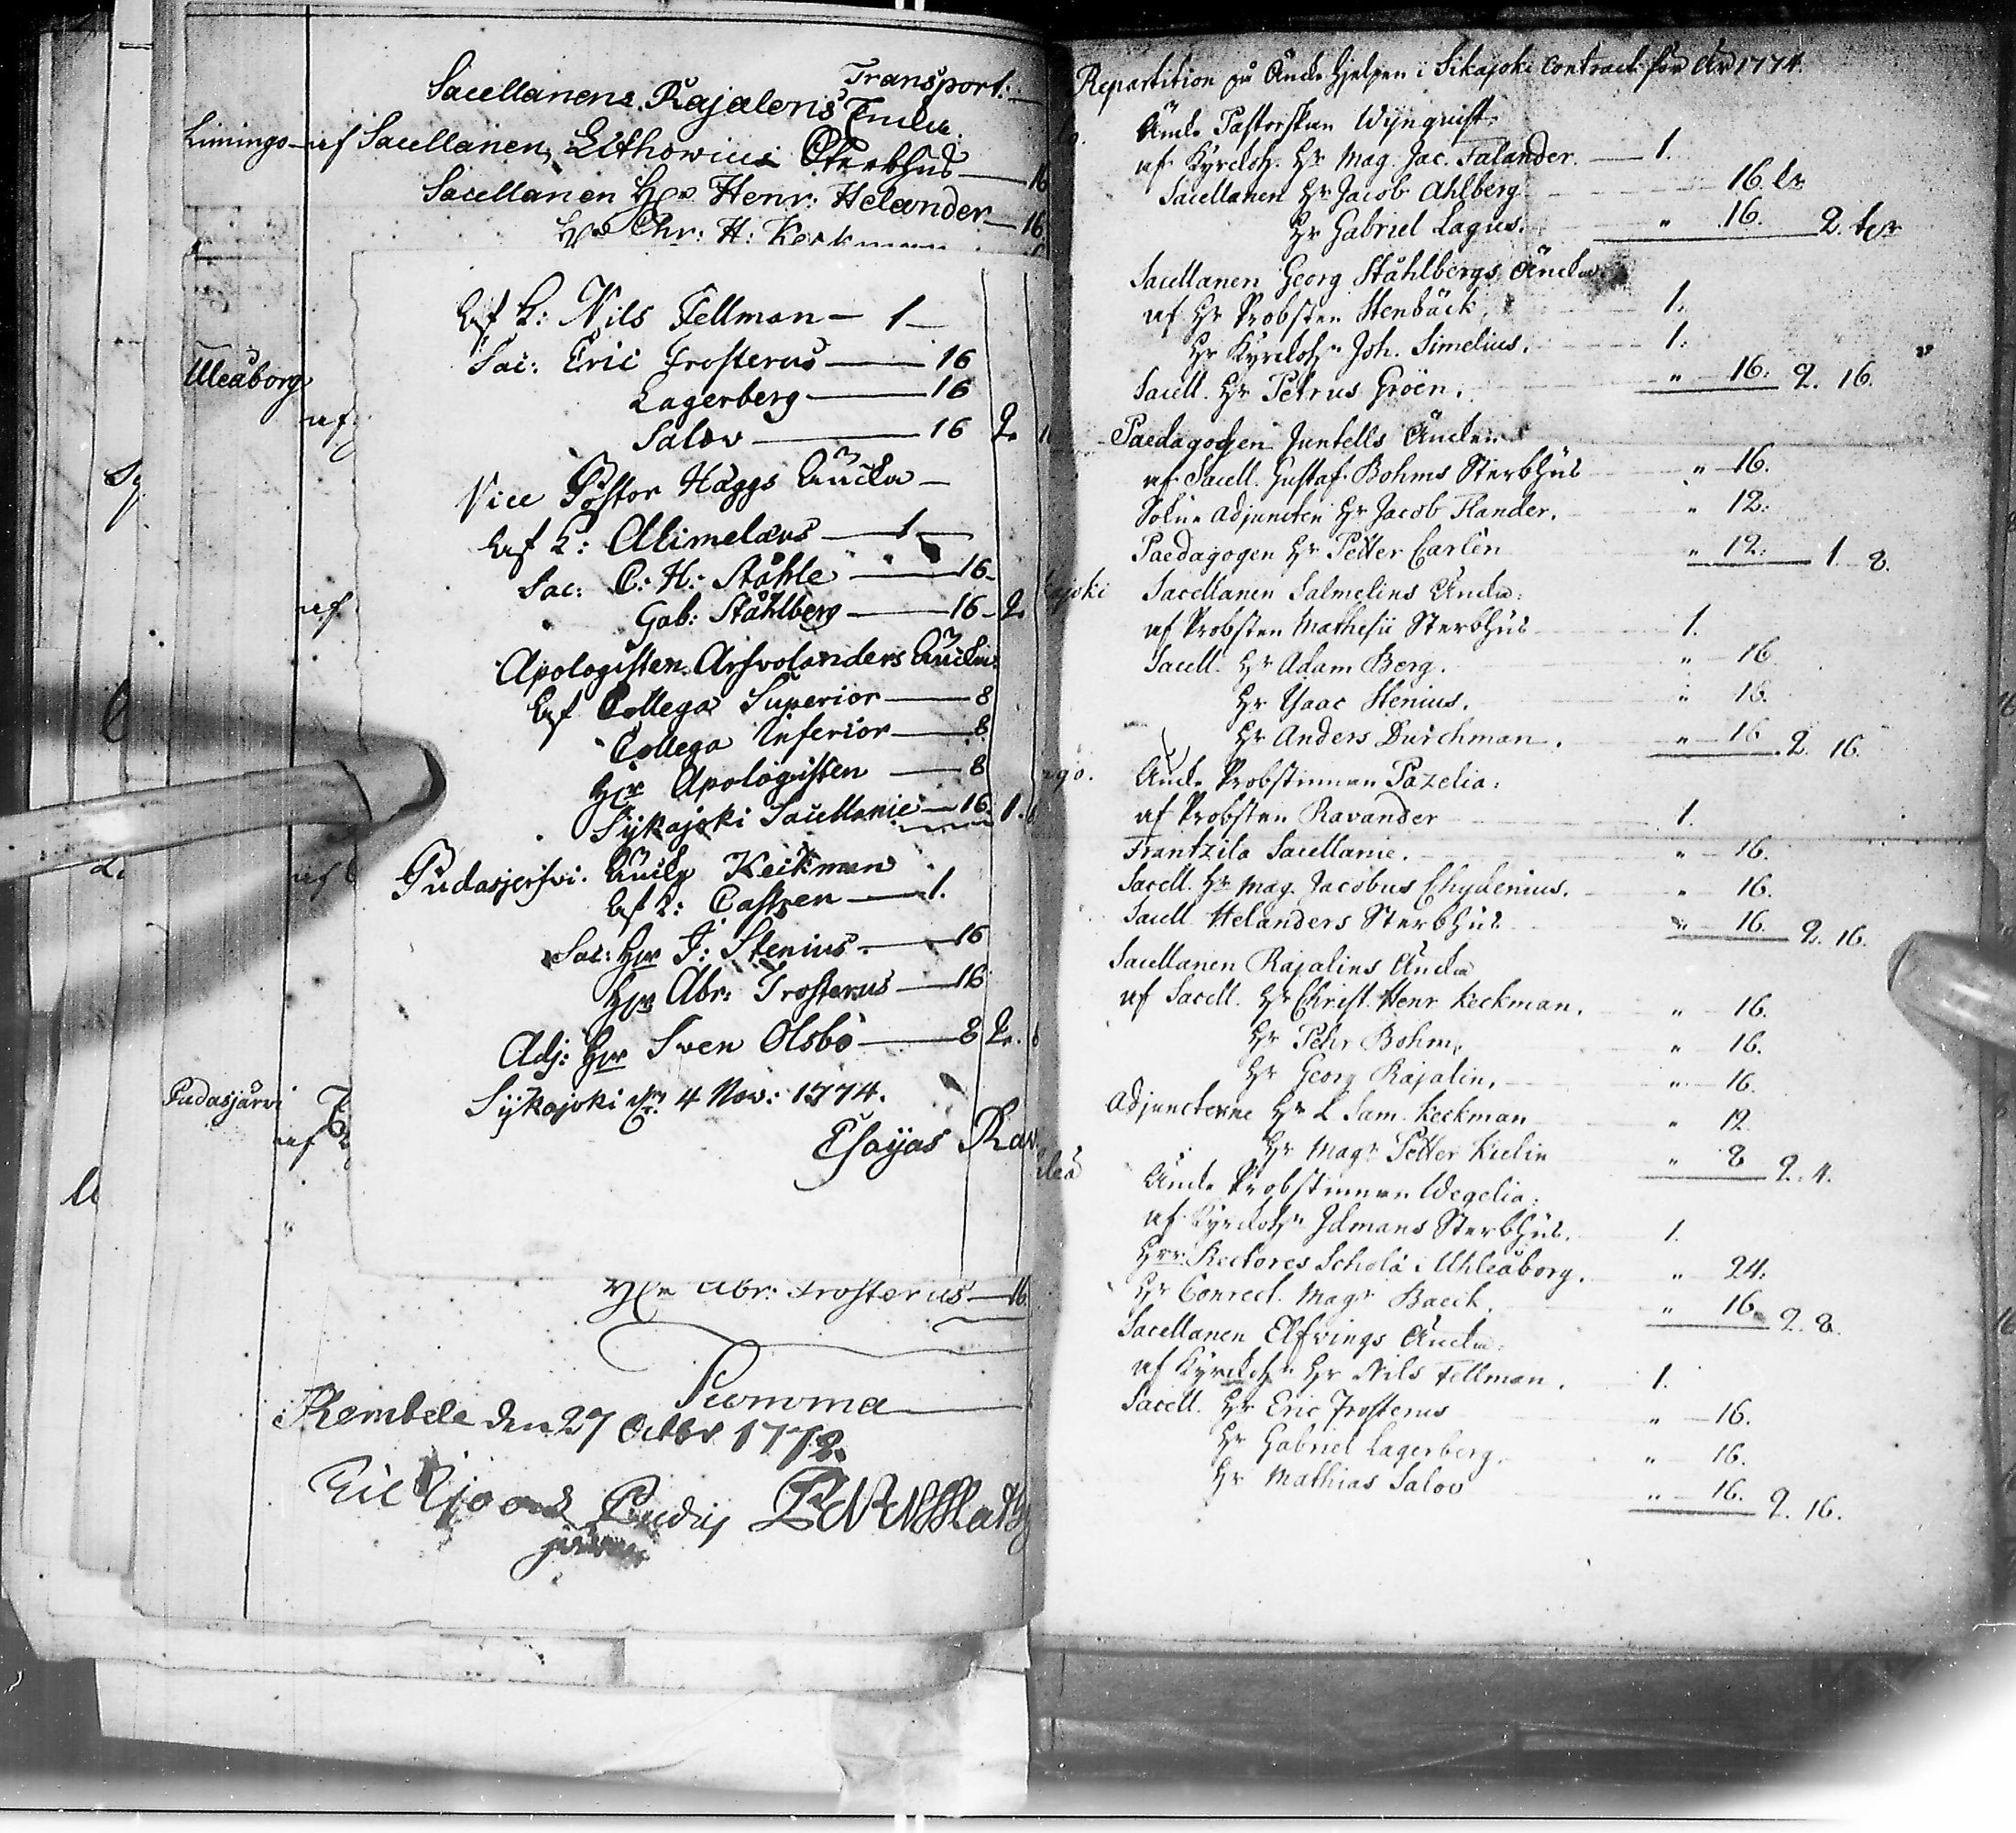 Transport.
Sacellanens Rajalens Encka.
Limingo af Sacellanen, Lithowius Sterbhus 16
Sacellanen Hr Henr: Helander 16
Hr Chr: H: Keckman
Af K: Nils Fellman 1
Sac: Eric Frosterus 16
Uleåborg
Lagerberg 16
af
Salov 16 2.
Vice Pastor Häggs Äncka
Af K: Alimelæus 1
Sac: C: H: Ståhle 16
af
Gab: Ståhlberg 16 2.
Apologisten Arfvolanders Äncka
Af Collega Superior 8
Collega Inferior 8
Hr Apologisten 8
Sijkajoki Sacellanie 16 1.
af
Pudasjerfwi. Äncka Keckman
Af K: Castren 1.
Sac: Hr J: Stenius 16
Hr Abr: Frosterus 16
Adj: Hr Sven Olsbo 8 2.
Pudasjärvi
Sijkajoki den 4 Nov: 1774.
af
Esaijas Rav
Hr Abr: Frosterus 16
Summa
Kembele den 27 Octbr 1772.
Repartition på Äncke hjelpen i Sikajoki Contract för År 1774.
Äncke Pastorskan Wijnqvist
af Kyrckoh. Hr Mag. Jac. Falander. 1.
Sacellanen Hr Jacob Ahlberg 16. ör
Hr Gabriel Lagus. " 16. 2. dlr
Sacellanen Georg Ståhlbergs Äncka
af Hr Probsten Stenbäck, 1.
Hr Kyrckoh. Joh. Simelius. 1.
Sacell. Hr Petrus Gröen. " 16. 2. 16.
Paedagogen Juntells Äncka
af Sacell. Gustaf Bohms Sterbhus " 16.
Sokne Adjuncten Hr Jacob Flander. " 12.
Paedagogen Hr Petter Carlen " 12. 1. 8.
Sacellanen Salmelins Äncka:
af Probsten Mathesii Sterbhus 1.
Sacell. Hr Adam Berg. " 16
Hr Ysaac Stenius. " 16.
Hr Anders Durchman. " 16 2. 16.
Äncke Probstinnan Pazelia:
af Probsten Ravander 1.
Frantzila Sacellanie. " 16.
Sacell. Hr Mag. Jacobus Chydenius. " 16.
Sacell Helanders Sterbhus " 16. 2. 16.
Sacellanen Rajalins Äncka
af Sacell. Hr Christ. Henr Keckman. " 16.
Hr Pehr Bohm, " 16.
Hr Georg Rajalin. " 16.
Adjuncterne Hr L. Sam. Keckman " 12
Hr Magr Petter Kielin " 8 2. 4.
Äncke Probstinnan Wegelia:
af Kyrckoh. Idmans Sterbhus. 1.
Hrr Rectores Schola i Uhleåborg. " 24.
Hr Conrect. Magr Baeck. " 16 2. 8.
Sacellanen Elfvings Äncka:
af Kyrckoh. Hr Nils Fellman. 1.
Sacell. Hr Eric Frosterus " 16.
Hr Gabriel Lagerberg. " 16.
Hr Mathias Salov " 16. 2. 16.